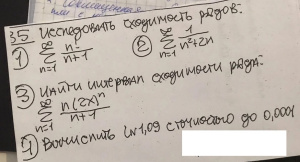 35 Исследовать сходимость рядов:
① ∞∑n=1 n/(n+1) ② ∞∑n=1 1/(n²+2n)
③ Найти интервал сходимости ряда:
∞∑n=1 n(2x)ⁿ/(n+1)
④ Вычислить ln 1,09 с точностью до 0,0001